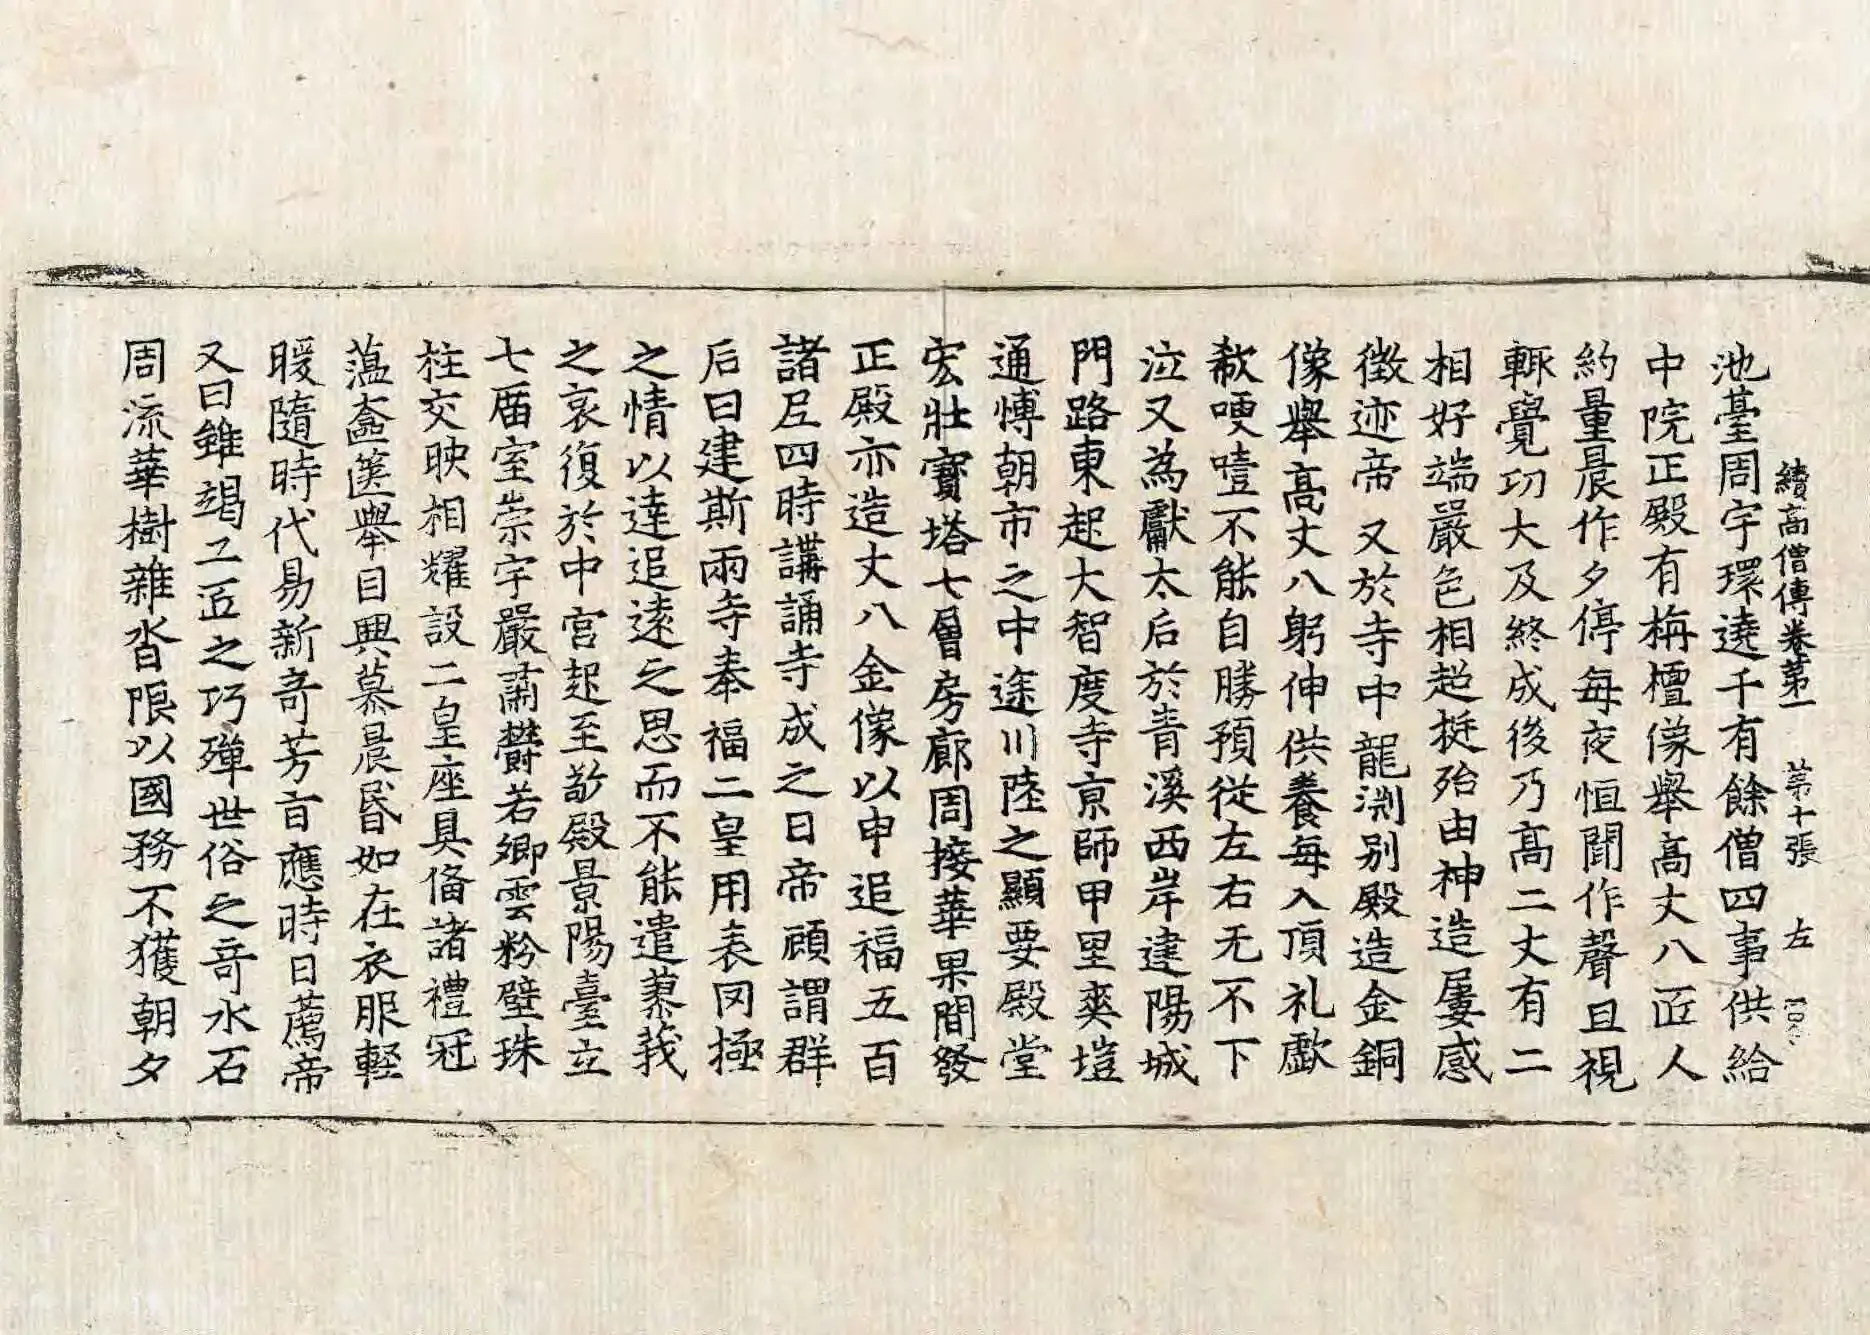 續高僧傳卷第一 第十張 左
池臺周宇環遶千有餘僧四事供給
中院正殿有栴檀像舉高丈八匠人
約量晨作夕停每夜恒聞作聲且視
輒覺功大及終成後乃高二丈有二
相好端嚴色相超挺殆由神造屢感
徵迹帝又於寺中龍渊别殿造金銅
像舉高丈八躬伸供養每入頂礼歔
欷哽噎不能自勝預從左右无不下
泣又為獻太后於青溪西岸建陽城
門路東起大智度寺京師甲里爽塏
通博朝市之中途川陸之顯要殿堂
宏壯寶塔七層房廊周接華果間發
正殿亦造丈八金像以申追福五百
諸尼四時講誦寺成之日帝顧謂群
后曰建斯兩寺奉福二皇用表罔極
之情以達追遠之思而不能遣蓼莪
之哀復於中宮起至敬殿景陽臺立
七庿室崇宇嚴肅欝若卿雲粉壁珠
柱交映相耀設二皇座具俻諸禮冠
蒀奩篋舉目興慕晨昏如在衣服輕
暖隨時代易新奇芳旨應時日薦帝
又曰雖竭工匠之巧殫世俗之奇水石
周流華樹雜沓限以國務不獲朝夕